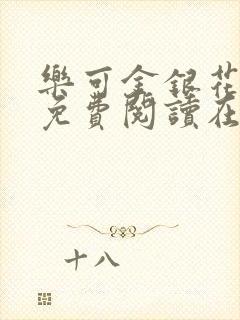 樂可金銀花
免費閱讀在
十八